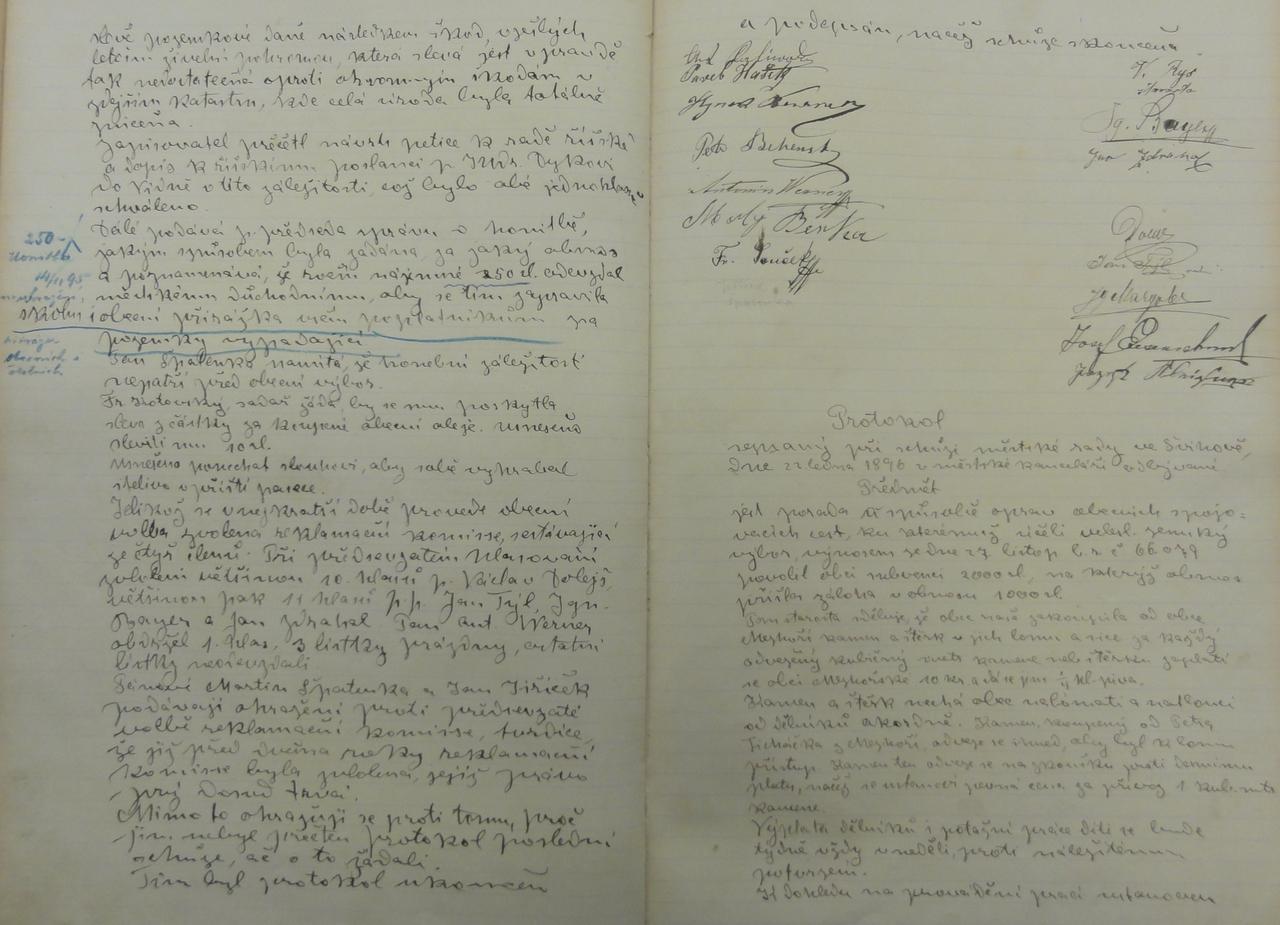 slevě pozemkové daně následkem škod, vzešlých
letošní živelní pohromou, která sleva jest vpravdě
tak nedostatečná oproti ohromným škodám v
zdejším katastru, kde celá úroda byla totálně
zničena.
Zapisovatel přečetl návrh petice k radě říšské
a dopis k říšskému poslanci p. JUDr. Dykovi
do Vídně v této záležitosti, což bylo obé jednohlasně
schváleno.
Dále podává p. předseda zprávu o honitbě,
jakým způsobem byla zadána, za jaký obnos
a poznamenává, že roční nájemné 250 zl. odevzdal
městskému důchodnímu, aby se tím zapravila
školní i obecní přirážka všem poplatníkům za
pozemky vypadající
250 -
14/11 95
Jan Špatenka namítá, že honební záležitost
nepatří před obecní výbor.
Fr. Kotovský, sadař žádá, by se mu poskytla
sleva z částky za koupené obecní aleje. Usneseno
sleviti mu 10 zl.
Usneseno ponechat slouhovi, aby sobě vyhrabal
stelivo v příští pasece.
Jelikož se v nejkratší době provede obecní
volba zvolena reklamační komisse, sestávající
ze čtyř členů. Při předsevzatém hlasování
zvoleni většinou 10. hlasů p. Václav Dolejš,
většinou pak 11 hlasů p.p. Jan Týl, Ign.
Bayer a Jan Zdrahal. Pan Ant. Werner
obdržel 1. hlas, 3 lístky prázdny, ostatní
lístky neodevzdali.
Pánové Martin Špatenka a Jan Jiřiček
podávají ohražení proti předsevzaté
volbě reklamační komisse, tvrdíce,
že již před dvěma roky reklamační
komisse byla zvolena, jejíž právo
prý dosud trvá.
Mimo to ohražují se proti tomu, proč
jim nebyl přečten protokol poslední
schůze, ač o to žádali.
Tím byl protokol ukončen
a podepsán, načež schůze skončena.
Pavel Hašek
Hynek
Petr
Antonín Werner
Benka
Fr. Souček
V. Rys
starosta
Ig. Bayer
Jan Zdrahal
Jan Týl
Josef
Josef
Protokol
sepsaný při schůzi městské rady ve
dne 22 ledna 1896 v městské kanceláři odbývané
Předmět
jest porada o způsobě oprav obecních spojo-
vacích cest, ku kterémuž účeli vel. zemský
výbor, výnosem ze dne 27. listop. l. r. č 66.079
povolil obci subvenci 2000 zl, na kterýž obnos
přišla záloha v obnosu 1000 zl.
Pan starosta sděluje, že obec naše zakoupila od obce
kámen a štěrk v jich lomu a sice za každý
odvezený kubičný metr kamene neb štěrku zaplatí
se obci 10 kr a dá se jim ½ hl. piva.
Kámen a štěrk nechá obec nalámati a natlouci
od dělníků akordně. Kámen, koupený od Petra
odveze se ihned, aby byl k lomu
přístup. Kámen ten odveze se na zkoušku proti dennímu
platu, načež se ustanoví pevná cena za přívoz 1 kub. mtr
kamene.
Výplata dělníků i potažní práce díti se bude
týdně vždy v neděli, proti náležitému
potvrzení.
K dohledu na provádění prací ustanoven